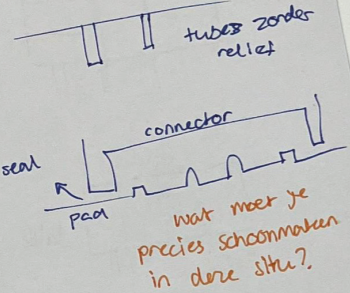 tubes zonder
relief
connector
seal
pad
wat moet je
precies schoonmaken
in deze situ?